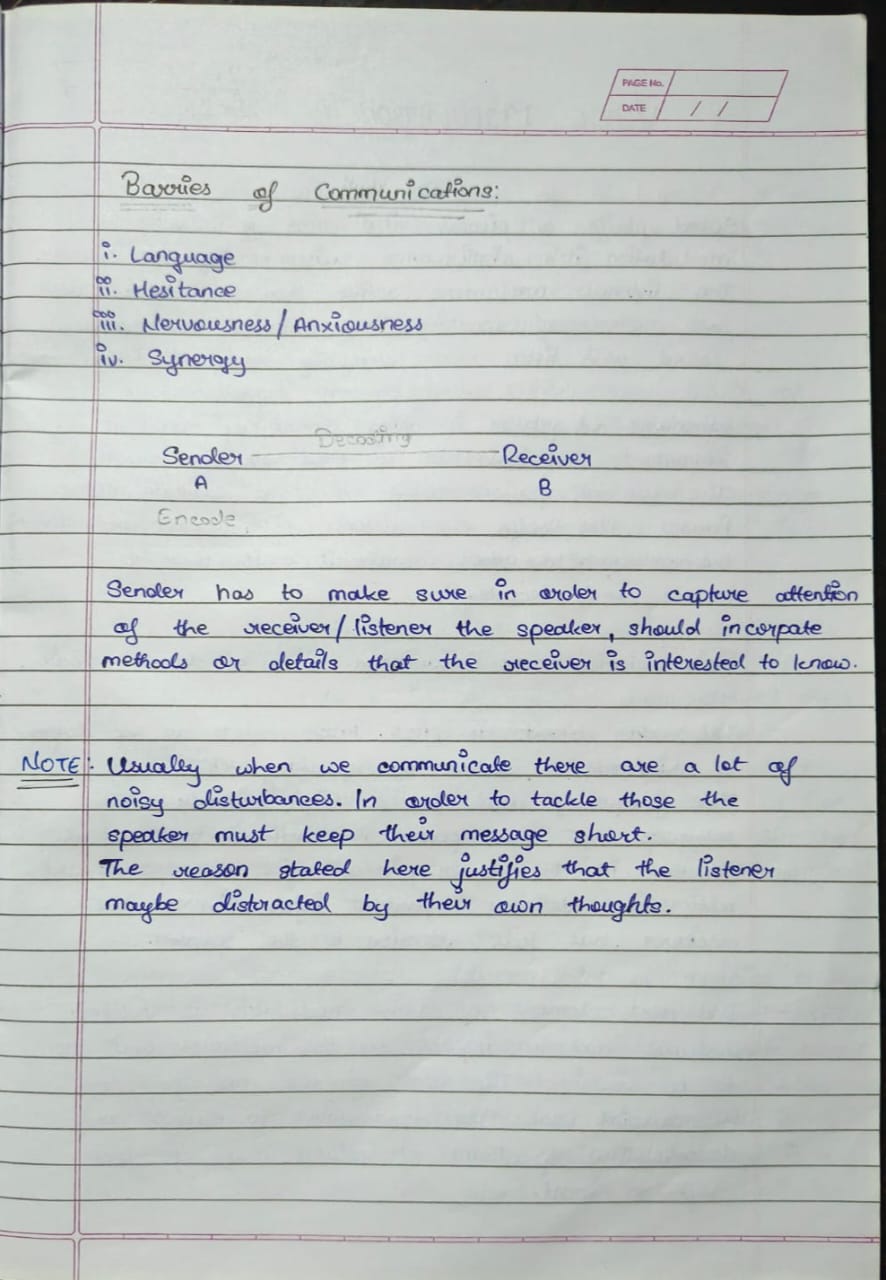 PAGE No.
DATE / /
Barries of Communications:
i. Language
ii. Hesitance
iii. Nervousness/Anxiousness
iv. Synergy
Decoding
Sender Receiver
A B
Encode
Sender has to make sure in order to capture attention
of the receiver/listener the speaker, should incorpate
methods or details that the receiver is interested to know.
NOTE: Usually when we communicate there are a lot of
noisy disturbances. In order to tackle those the
speaker must keep their message short.
The reason stated here justifies that the listener
maybe distracted by their own thoughts.